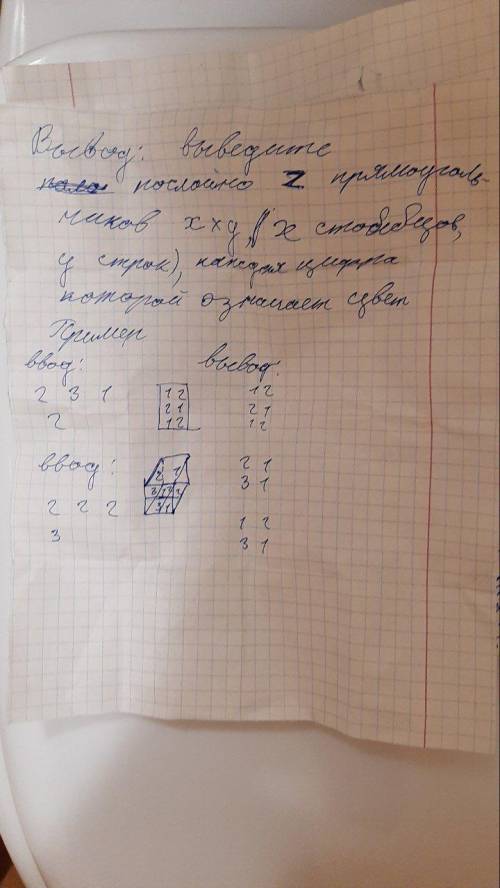 Вывод: выведите
послойно z прямоуголь-
ников x×y, (x столбцов,
y строк), каждая цифра
которой означает цвет
Пример
ввод: вывод:
2 3 1 12 12
2 21 21
12 12
ввод: 2 1 2 1
2 2 2 3 1
3 1 2
3 1